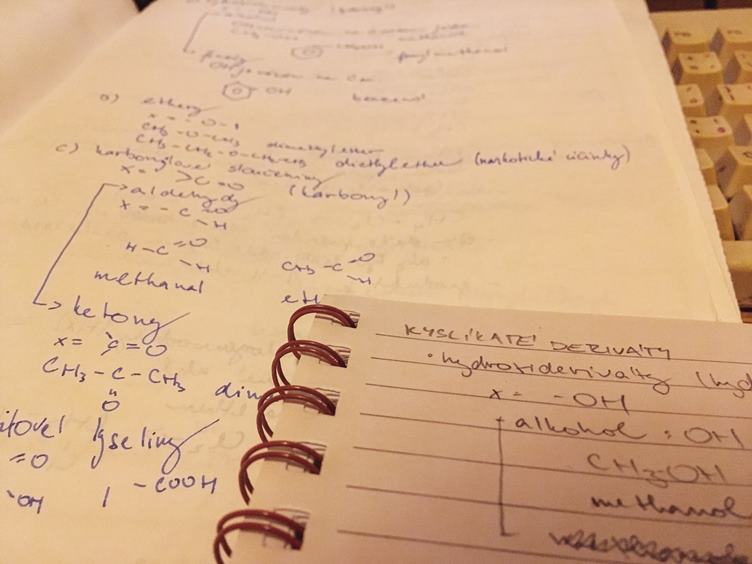 methanol
fenylmethanol
fenoly
OH
OH
b) ethery
x = - O -
CH3 - O - CH3 dimethylether
CH3 - CH2 - O - CH2CH3 diethylether (narkotické účinky)
c) karbonylové sloučeniny
x = >C=O (karbonyl)
→ aldehydy
x = - C =O
- H
H - C =O
- H
CH3 - C =O
- H
methanal
eth
→ ketony
x = C = O
CH3 - C - CH3 dim
O
kyseliny
=O
-OH
-COOH
KYSLÍKATÉ DERIVÁTY
• hydroxiderivaity (hyd
x = - OH
alkohol : OH
CH3OH
methanol